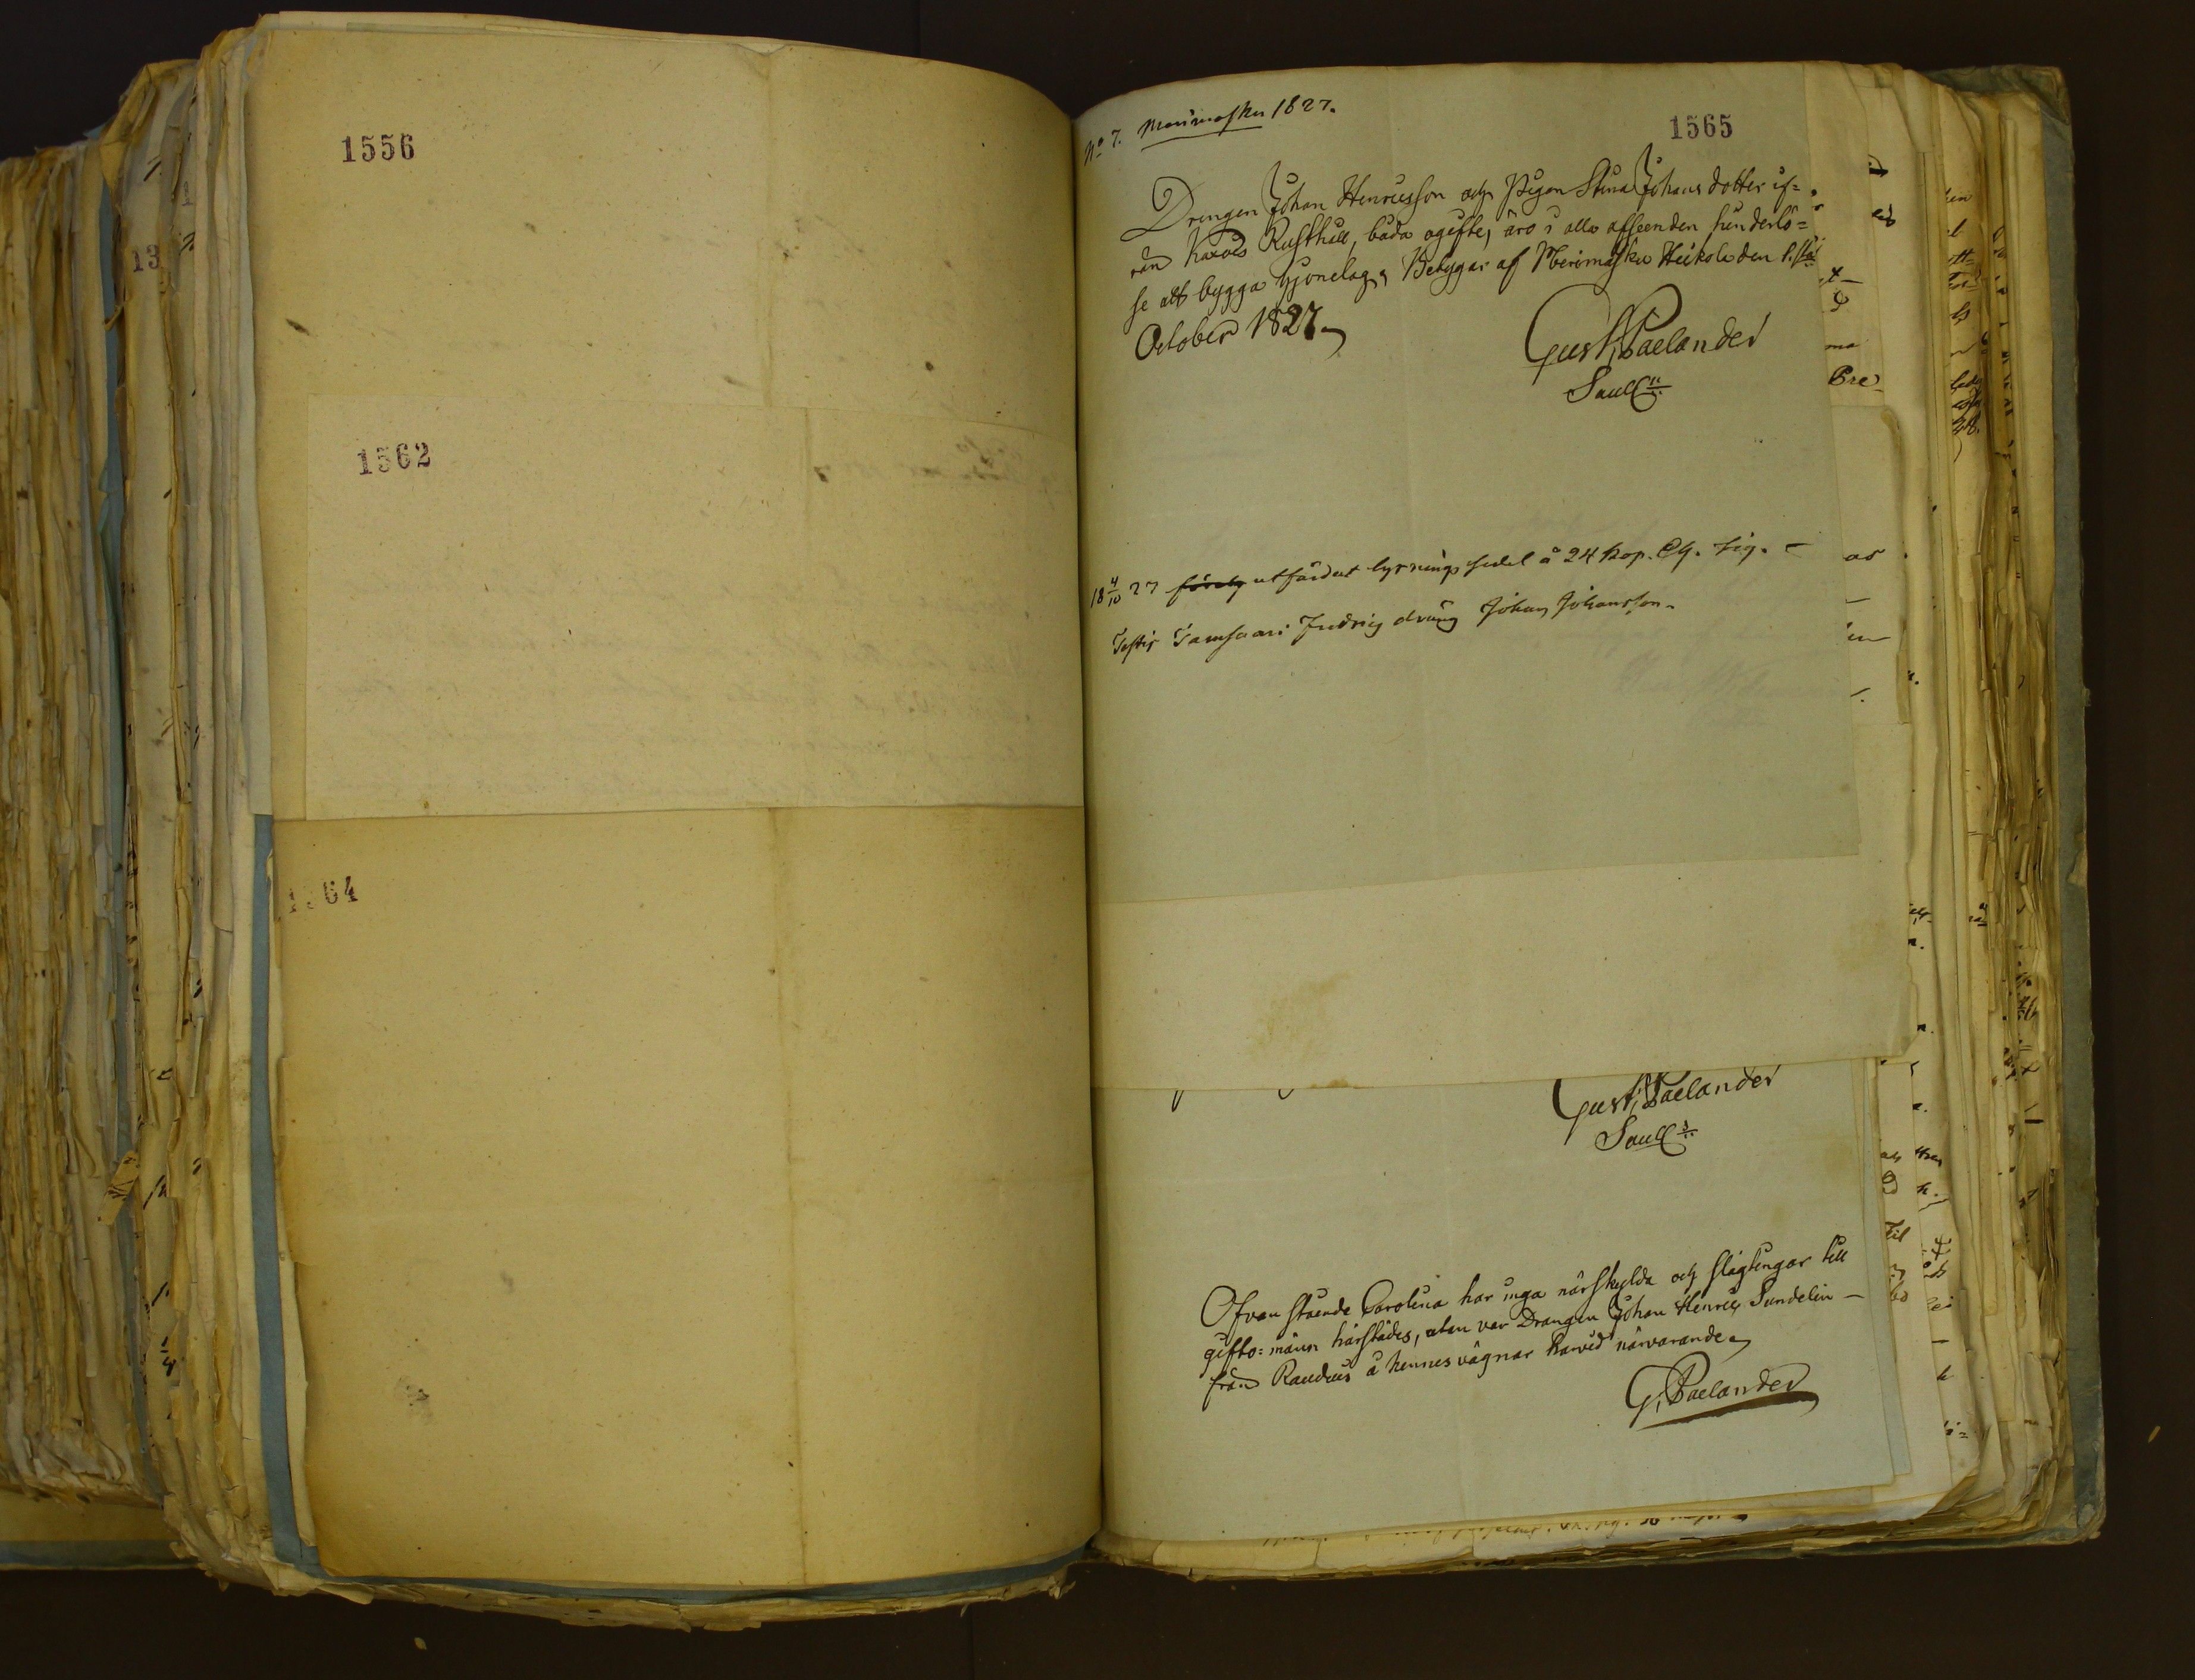 1556
1562
1564
13
No 7. Merimasku 1827.
1565
Drengen Johan Henricsson och Pigan Stina Johansdotter if=
rån Karvois Rusthåll, båda ogifte, äro i alla afseenden hinderlö=
se att bygga hjonelag, Betygar af Merimasku Heikola den 1:sta
October 1827.
Gust. Paelander
Sacell:n
18 4/10 27 utfärdat lysningssedel à 24 kop. Ch. Sig.
Testis Tamsaari Fredrics dräng Johan Johansson.
Gust. Paelander
Sacell:s
Ofvanstående Carolina har inga närskylda och slägtingar till
gifto=män härstädes, utan var Drengen Johan Henric Sundelin
från Rauduis å hennes vägnar harvid närvarande
G. Paelander